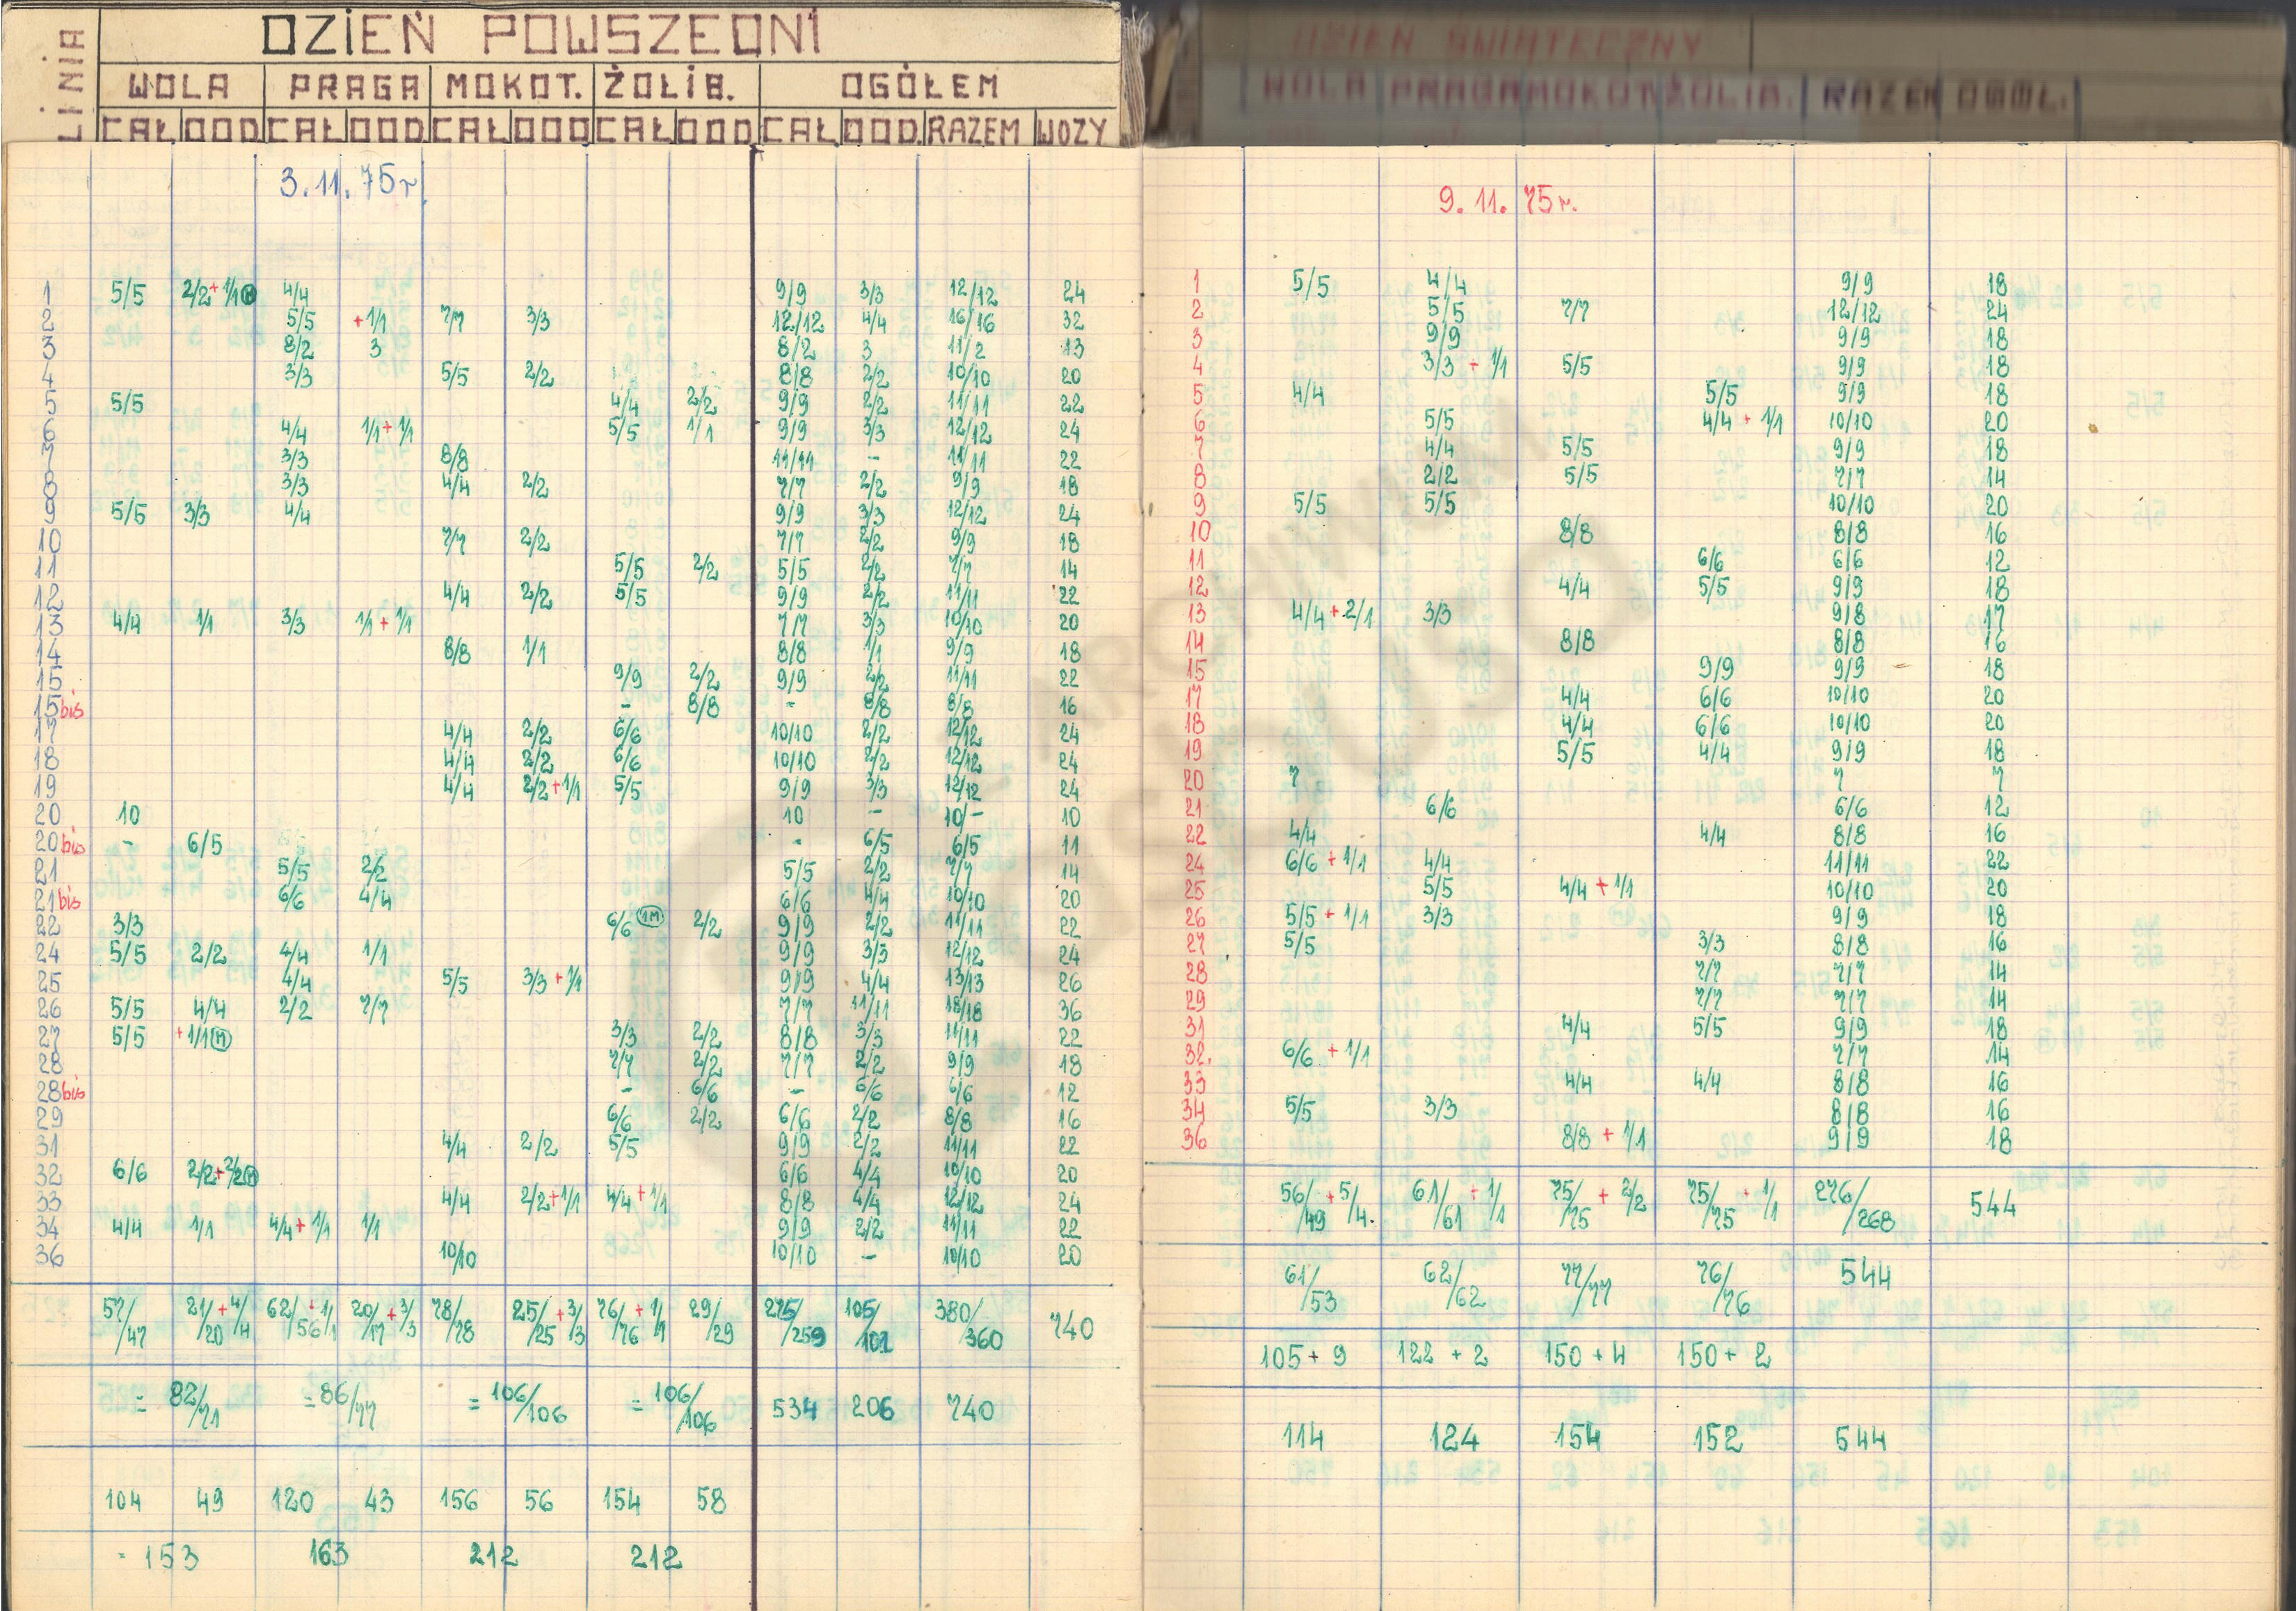 LINIA
DZIEŃ POWSZEDNI
WOLA PRAGA MOKOT. ŻOLIB. OGÓŁEM
CAŁ DOD CAŁ DOD. CAŁ DOD CAŁ DOD. CAŁ DOD. RAZEM WOZY
3.11.75r.
1 5/5 2/2+1/1 M 4/4 9/9 3/3 12/12 24
2 5/5 +1/1 7/7 3/3 12/12 4/4 16/16 32
3 8/2 3 8/2 3 11/2 13
4 3/3 5/5 2/2 8/8 2/2 10/10 20
5 5/5 4/4 2/2 9/9 2/2 11/11 22
6 4/4 1/1+1/1 5/5 1/1 9/9 3/3 12/12 24
7 3/3 8/8 11/11 - 11/11 22
8 3/3 4/4 2/2 7/7 2/2 9/9 18
9 5/5 3/3 4/4 9/9 3/3 12/12 24
10 7/7 2/2 7/7 2/2 9/9 18
11 5/5 2/2 5/5 2/2 7/7 14
12 4/4 2/2 5/5 9/9 2/2 11/11 22
13 4/4 1/1 3/3 1/1+1/1 7/7 3/3 10/10 20
14 8/8 1/1 8/8 1/1 9/9 18
15 9/9 2/2 9/9 2/2 11/11 22
15bis - 8/8 - 8/8 8/8 16
17 4/4 2/2 6/6 10/10 2/2 12/12 24
18 4/4 2/2 6/6 10/10 2/2 12/12 24
19 4/4 2/2+1/1 5/5 9/9 3/3 12/12 24
20 10 10 - 10/- 10
20bis - 6/5 - 6/5 6/5 11
21 5/5 2/2 5/5 2/2 7/7 14
21bis 6/6 4/4 6/6 4/4 10/10 20
22 3/3 6/6 1M 2/2 9/9 2/2 11/11 22
24 5/5 2/2 4/4 1/1 9/9 3/3 12/12 24
25 4/4 5/5 3/3+1/1 9/9 4/4 13/13 26
26 5/5 4/4 2/2 7/7 7/7 11/11 18/18 36
27 5/5 +1/1 M 3/3 2/2 8/8 3/3 11/11 22
28 7/7 2/2 7/7 2/2 9/9 18
28bis - 6/6 - 6/6 6/6 12
29 6/6 2/2 6/6 2/2 8/8 16
31 4/4 2/2 5/5 9/9 2/2 11/11 22
32 6/6 2/2+2/2 M 6/6 4/4 10/10 20
33 4/4 2/2+1/1 4/4+1/1 8/8 4/4 12/12 24
34 4/4 1/1 4/4+1/1 1/1 9/9 2/2 11/11 22
36 10/10 10/10 - 10/10 20
57/47 21/20+4/4 62/56+1/1 20/17+3/3 78/78 25/25+3/3 76/76+1/1 29/29 275/259 105/101 380/360 740
= 82/71 = 86/77 = 106/106 = 106/106 534 206 740
104 49 120 43 156 56 154 58
= 153 163 212 212
DZIEŃ ŚWIĄTECZNY
WOLA PRAGA MOKOT ŻOLIB. RAZEM OGÓŁ.
9.11.75r.
1 5/5 4/4 9/9 18
2 5/5 7/7 12/12 24
3 9/9 9/9 18
4 3/3 + 1/1 5/5 9/9 18
5 4/4 5/5 9/9 18
6 5/5 4/4 + 1/1 10/10 20
7 4/4 5/5 9/9 18
8 2/2 5/5 7/7 14
9 5/5 5/5 10/10 20
10 8/8 8/8 16
11 6/6 6/6 12
12 4/4 5/5 9/9 18
13 4/4+2/1 3/3 9/8 17
14 8/8 8/8 16
15 9/9 9/9 18
17 4/4 6/6 10/10 20
18 4/4 6/6 10/10 20
19 5/5 4/4 9/9 18
20 7 7 7
21 6/6 6/6 12
22 4/4 4/4 8/8 16
24 6/6 + 1/1 4/4 11/11 22
25 5/5 4/4 + 1/1 10/10 20
26 5/5 + 1/1 3/3 9/9 18
27 5/5 3/3 8/8 16
28 7/7 7/7 14
29 7/7 7/7 14
31 4/4 5/5 9/9 18
32. 6/6 + 1/1 7/7 14
33 4/4 4/4 8/8 16
34 5/5 3/3 8/8 16
36 8/8 + 1/1 9/9 18
56/49 + 5/4. 61/61 + 1/1 75/75 + 2/2 75/75 + 1/1 276/268 544
61/53 62/62 77/77 76/76 544
105 + 9 122 + 2 150 + 4 150 + 2
114 124 154 152 544